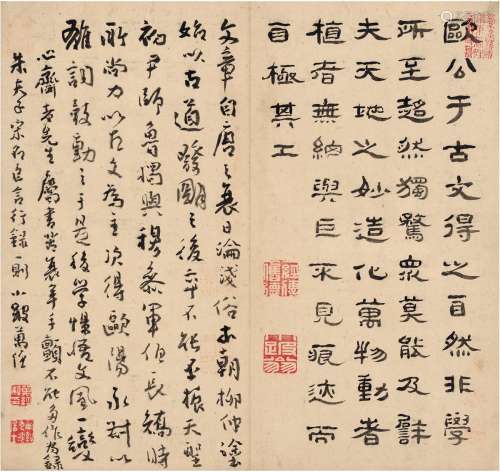 歐公于古文得之自然非學
所至超然獨騖眾莫能及譬
夫天地之妙造化萬物動者
植者無細與巨不見痕迹而
自極其工
文章自唐之衰日淪淺俗本朝柳仲塗
始以古道發明之後卒不能丕振天聖
初尹師魯獨與穆參軍伯長矯時
所尚力以古文為主次得歐陽永叔以
雄詞鼓動之于是後學悟文風變
心齋老先生屬書衰年手顫不能多作為錄
朱夫子宋名臣言行錄一則小萬經